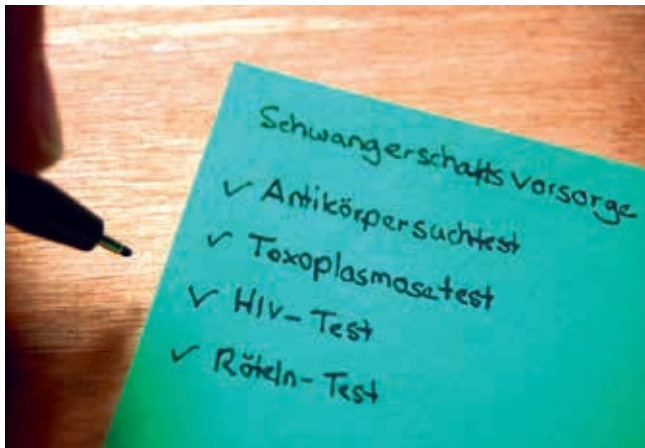 Schwangerschaftsvorsorge
✓ Antikörpersuchtest
✓ Toxoplasmosetest
✓ HIV-Test
✓ Röteln-Test